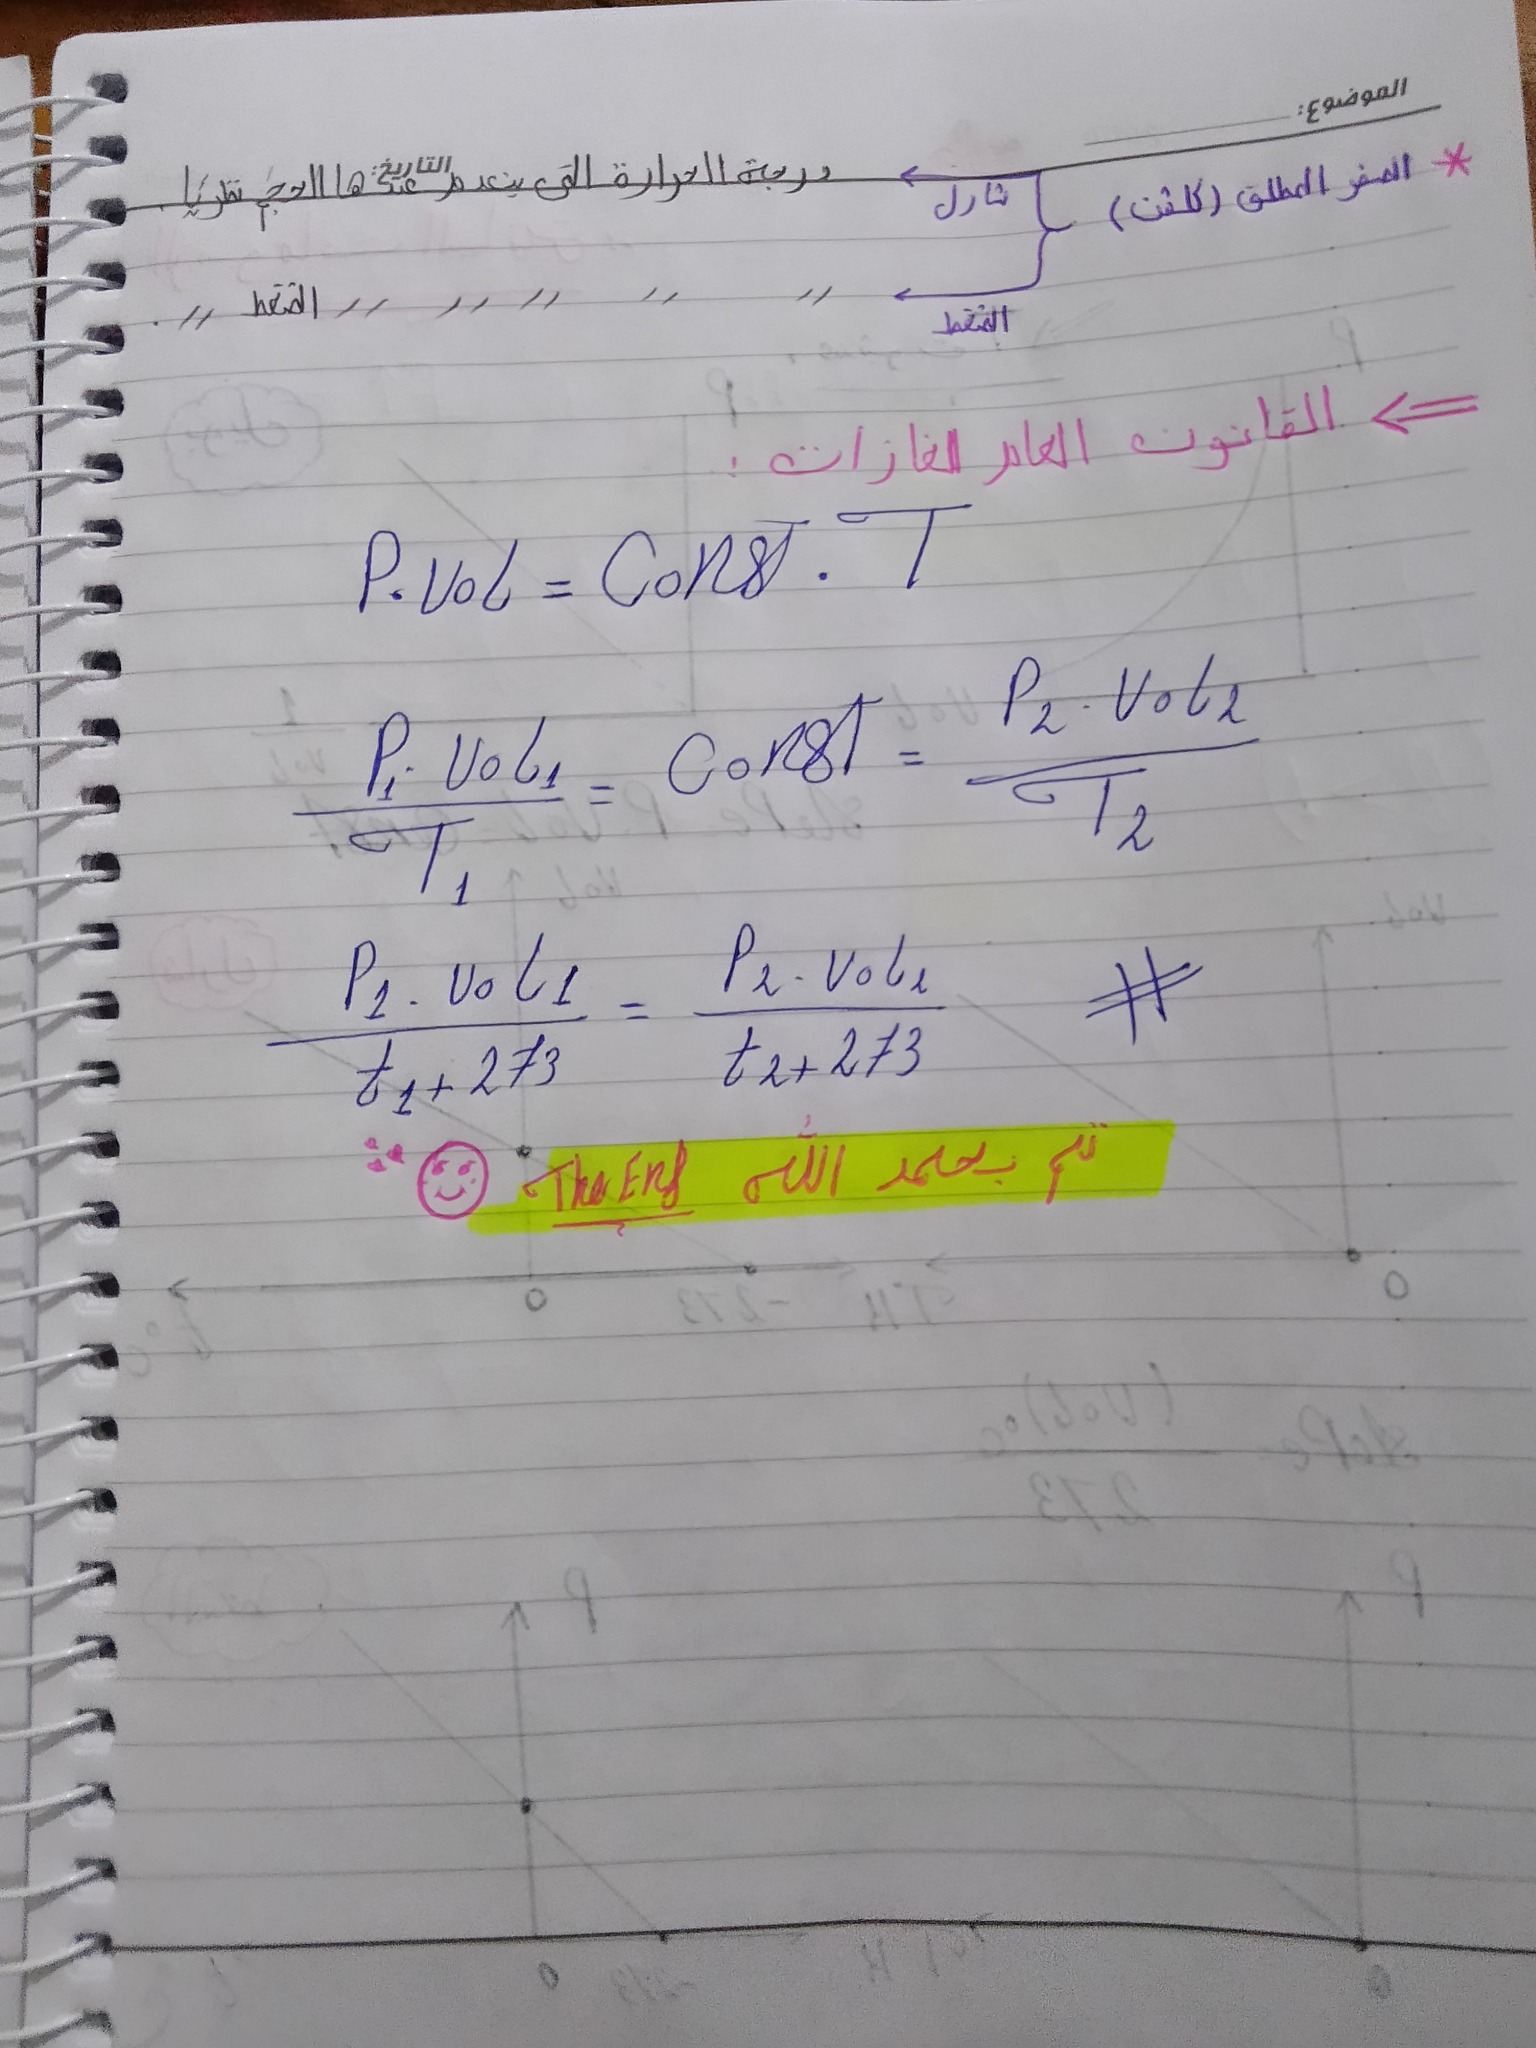 الموضوع:
* الصفر المطلق (كلفن)
شارل ← درجة الحرارة التى ينعدم عندها الحجم نظريًا.
التاريخ:
الضغط ← // // // // // الضغط // .
⇐ القانون العام للغازات :
P.Vol = Const . T
P1. Vol1 / T1 = Const = P2 . Vol2 / T2
P1 . Vol1 / t1 + 273 = P2 . Vol2 / t2 + 273 #
تم بحمد الله The End